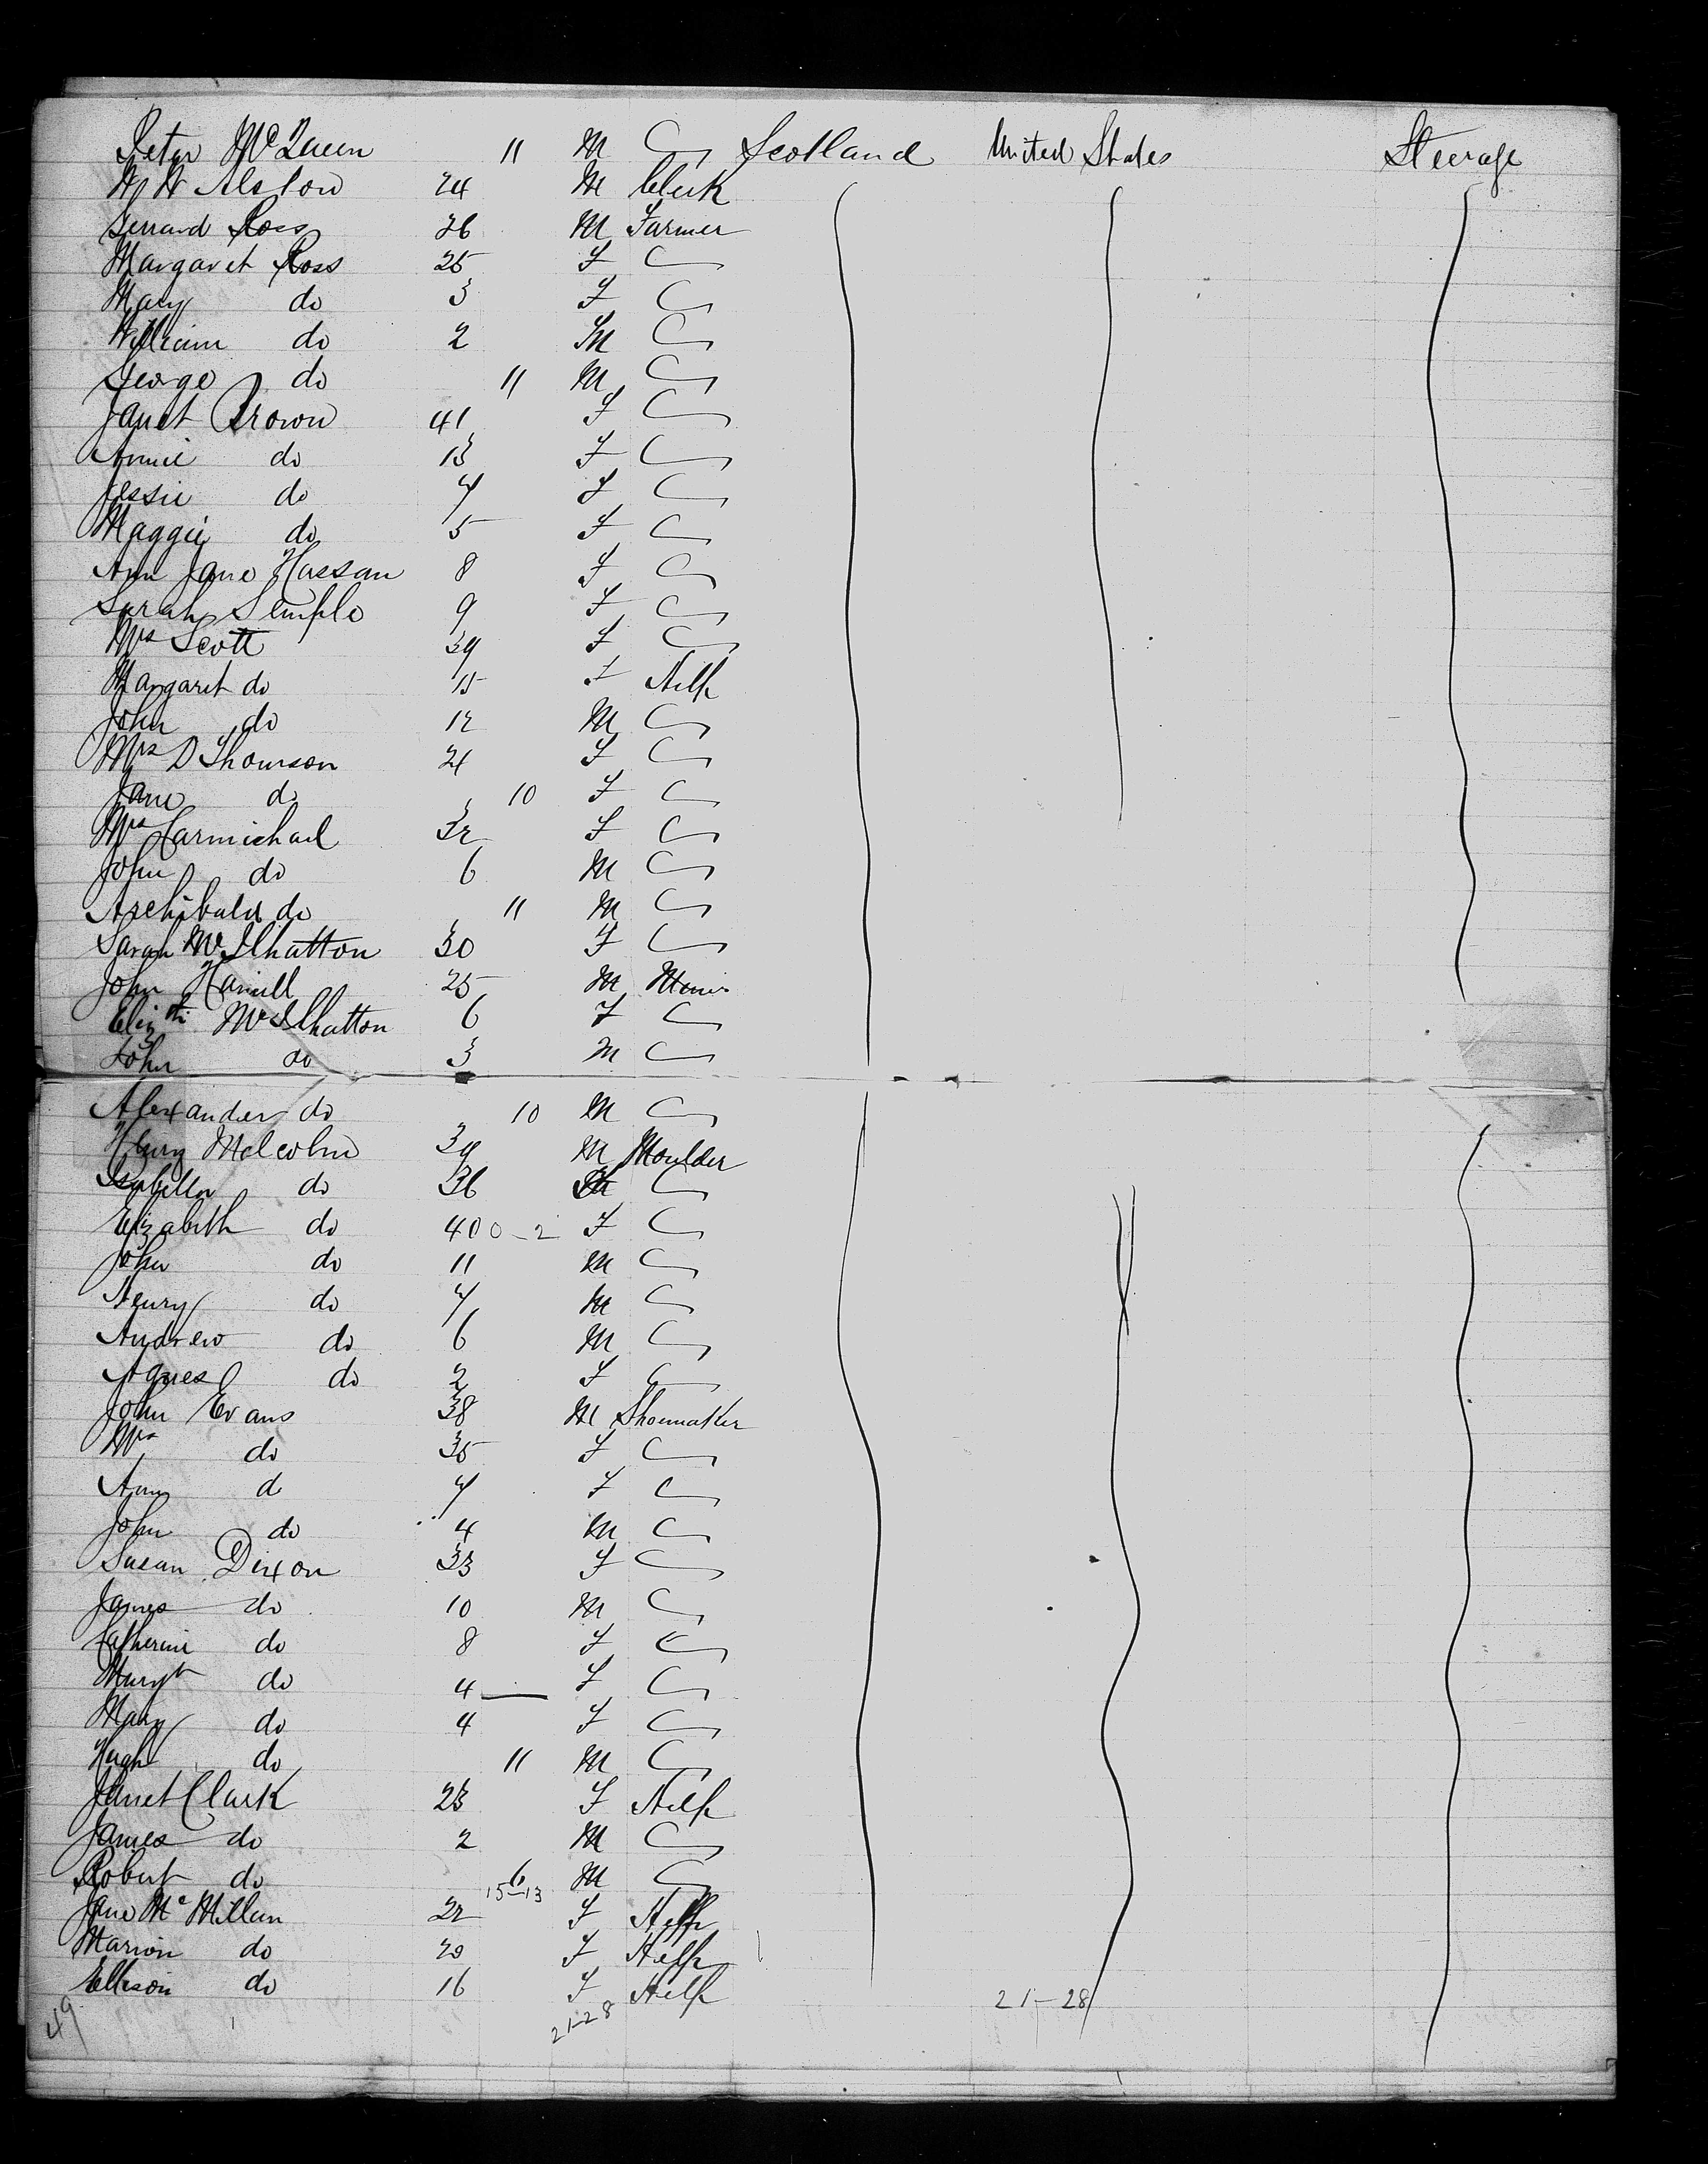 Peter McQueen 11 M Scotland United States Steerage
W H Alston 24 M Clerk
Gerrard Ross 26 M Farmer
Margaret Ross 25 F
Mary do 3 F
William do 2 M
George do 11 M
Janet Brown 41 F
Annie do 13 F
Jessie do 7 F
Maggie do 5 F
Ann Jane Hassan 8 F
Sarah Semple 9 F
Mrs Scott 39 F
Margaret do 15 F
John do 12 M
Mrs D Thomson 21 F
Jane do 10 F
Mrs Carmichael 32 F
John do 6 M
Archibald do 11 M
Sarah McIlhatton 30 F
John Hamill 25 M Miner
Elizth McIlhatton 6 F
John do 3 M
Alexander do 10 M
Henry Malcolm 39 M Moulder
Isabella do 36
Elizabeth do 40 0-2 F
John do 11 M
Henry do 7 M
Andrew do 6 M
Agnes do 2 F
John Evans 38 M Shoemaker
Mrs do 35 F
Ann do 7 F
John do 4 M
Susan Dixon 33 F
James do 10 M
Catherine do 8 F
Margt do 4 F
Mary do 4 F
Hugh do 11 M
Janet Clark 23 F
James do 2 M
Robert do 6 M
15-13
Jane McMillan 22 F
Marion do 20 F
Ellison do 16 F
21-28 21-28
49